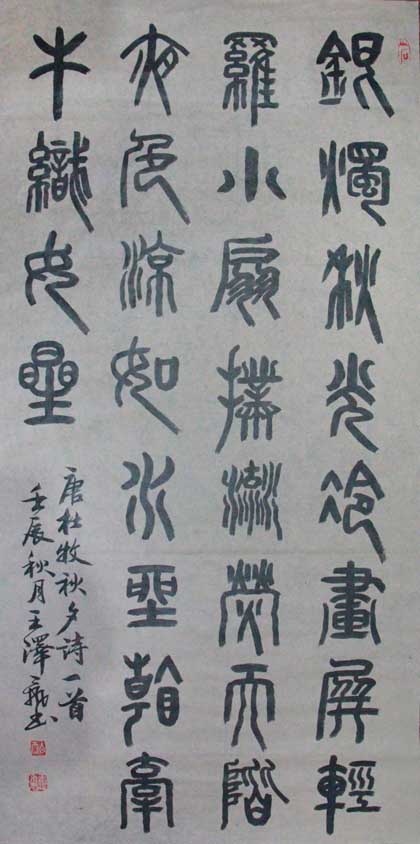 銀燭秋光冷畫屏輕
羅小扇撲流螢天階
夜色涼如水看牽
牛織女星
唐杜牧秋夕詩一首
壬辰秋月王澤書